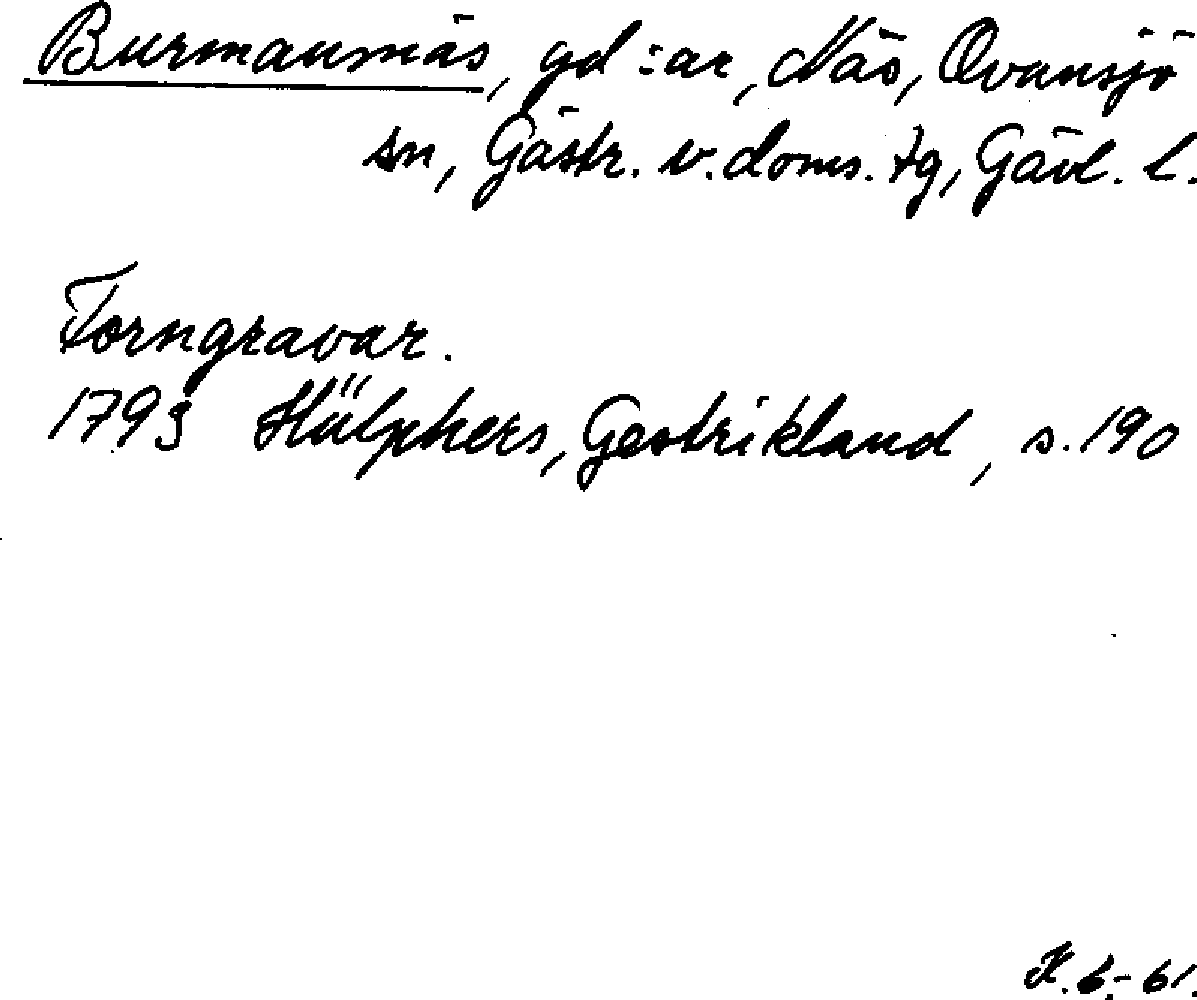 Burmansnäs, gd :ar, Näs, Ovansjö
sn, Gästr. v. doms. tg, Gävl. l.
Forngravar.
1793 Hülphers, Gestrikland, s. 190
K. 6.- 61.